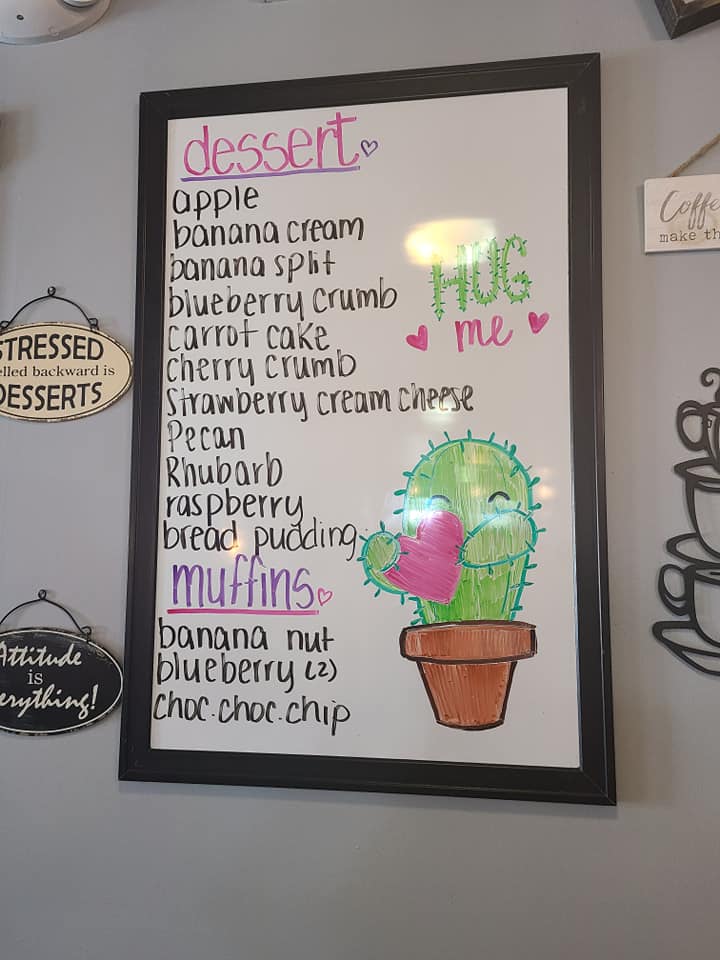 dessert
apple
banana cream
banana split
blueberry crumb
carrot cake
cherry crumb
Strawberry cream cheese
Pecan
Rhubarb
raspberry
bread pudding
muffins
banana nut
blueberry (2)
choc.choc.chip
HUG
me
STRESSED
elled backward is
DESSERTS
Attitude
is
erything!
Coffe
make th